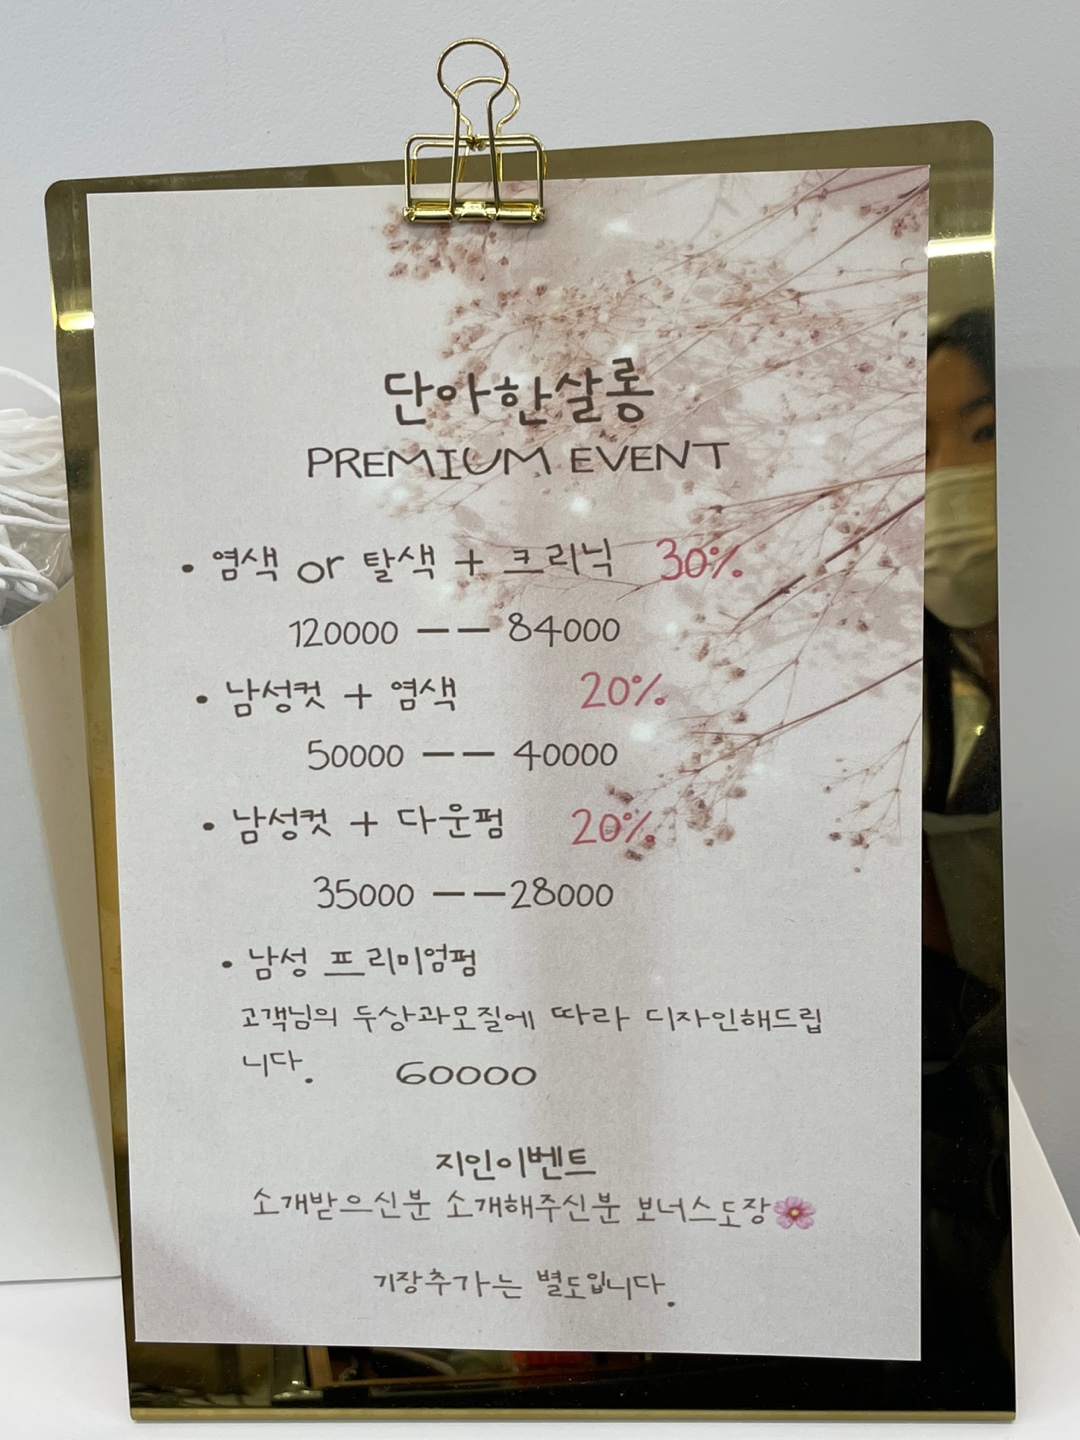 단아한살롱
PREMIUM EVENT
• 염색 or 탈색 + 크리닉 30%
120000 —— 84000
• 남성컷 + 염색 20%
50000 —— 40000
• 남성컷 + 다운펌 20%
35000 ——28000
• 남성 프리미엄펌
고객님의 두상과모질에 따라 디자인해드립
니다. 60000
지인이벤트
소개받으신분 소개해주신분 보너스도장🌸
기장추가는 별도입니다.